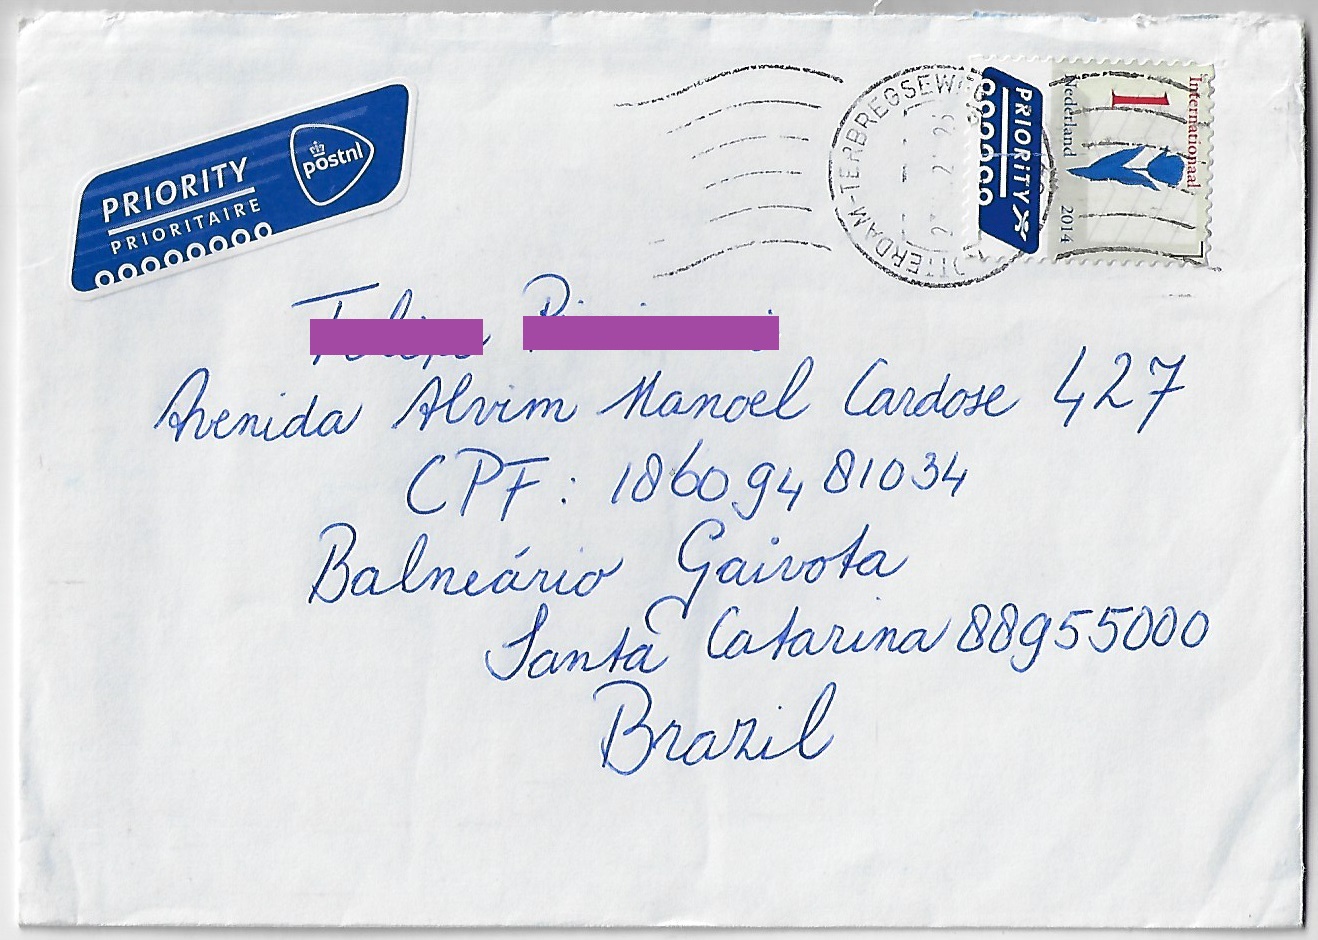 PRIORITY
PRIORITAIRE
postnl
PRIORITY
Internationaal
1
Nederland 2014
Avenida Alvim Manoel Cardose 427
CPF: 18609481034
Balneário Gaivota
Santa Catarina 88955000
Brazil